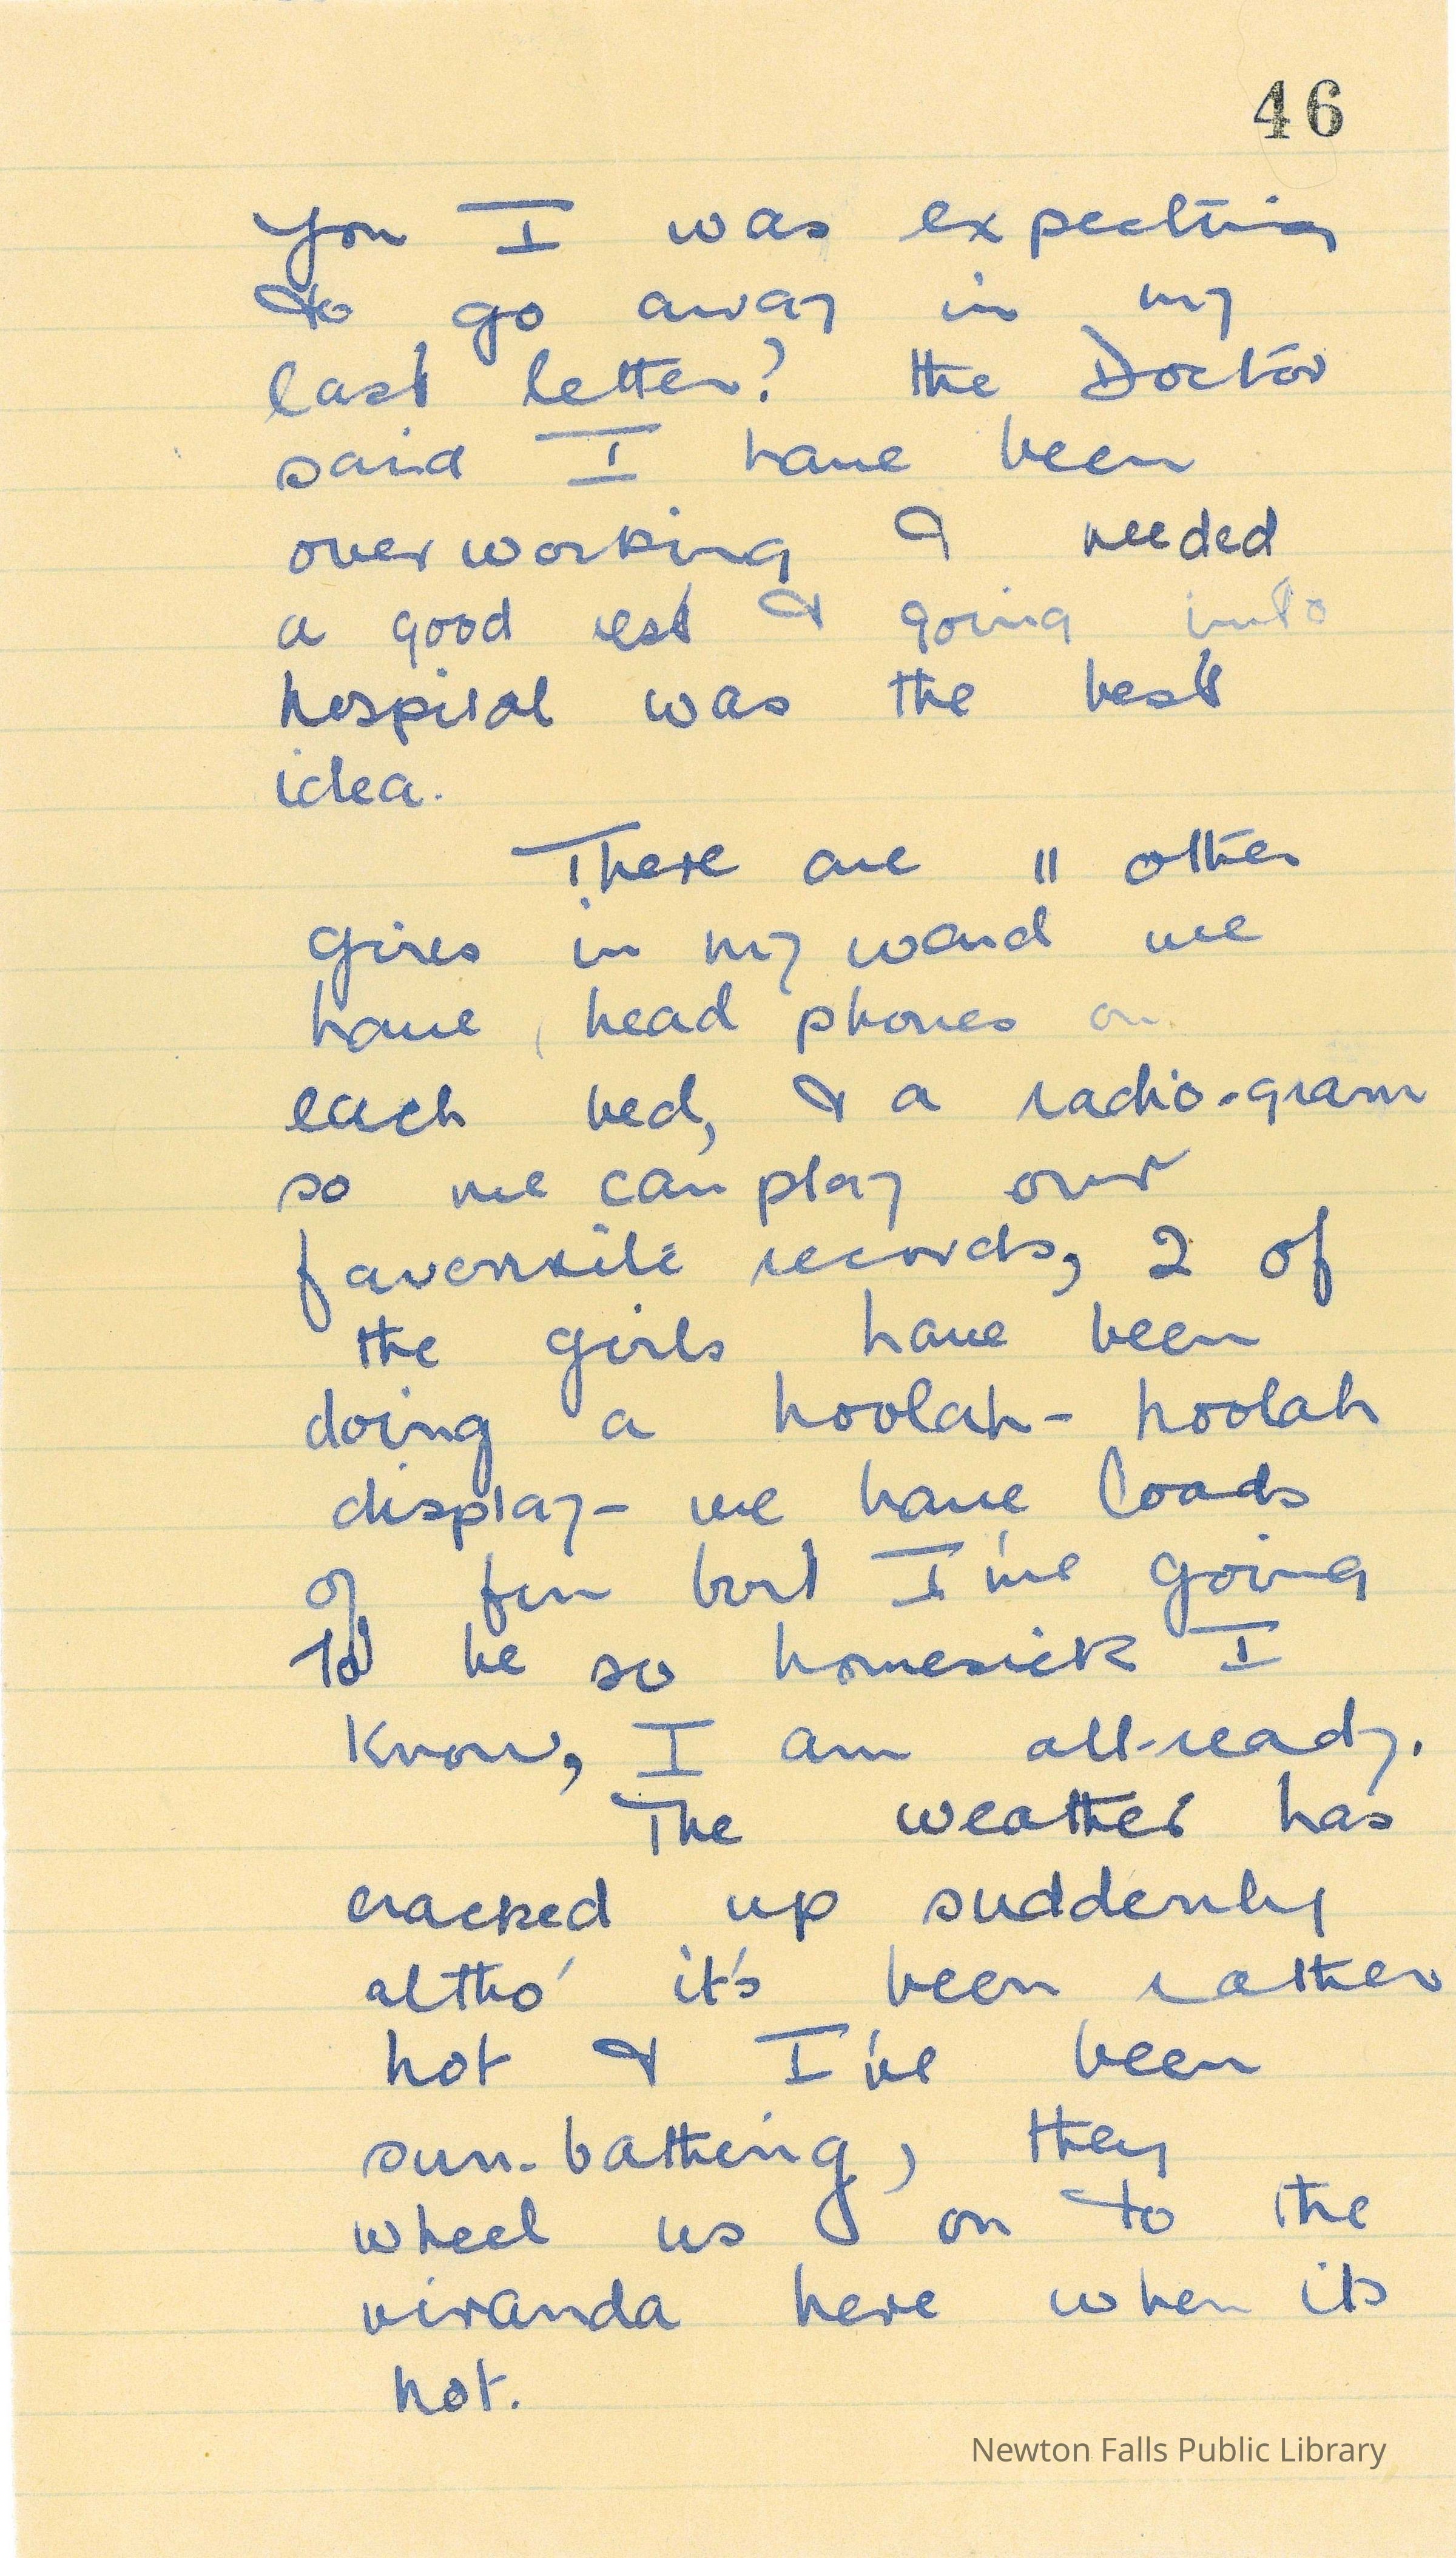 46
you I was expecting
to go away in my
last letter? the Doctor
said I have been
overworking & needed
a good rest & going into
hospital was the best
idea.
There are 11 other
girls in my ward we
have head phones on
each bed, & a radio-gram
so we can play our
favourite records, 2 of
the girls have been
doing a hoolah-hoolah
display- we have loads
of fun but I'me going
to be so homesick I
know, I am all-ready.
The weather has
cracked up suddenly
altho' it's been rather
hot & I've been
sun-bathing, they
wheel us on to the
viranda here when its
hot.
Newton Falls Public Library